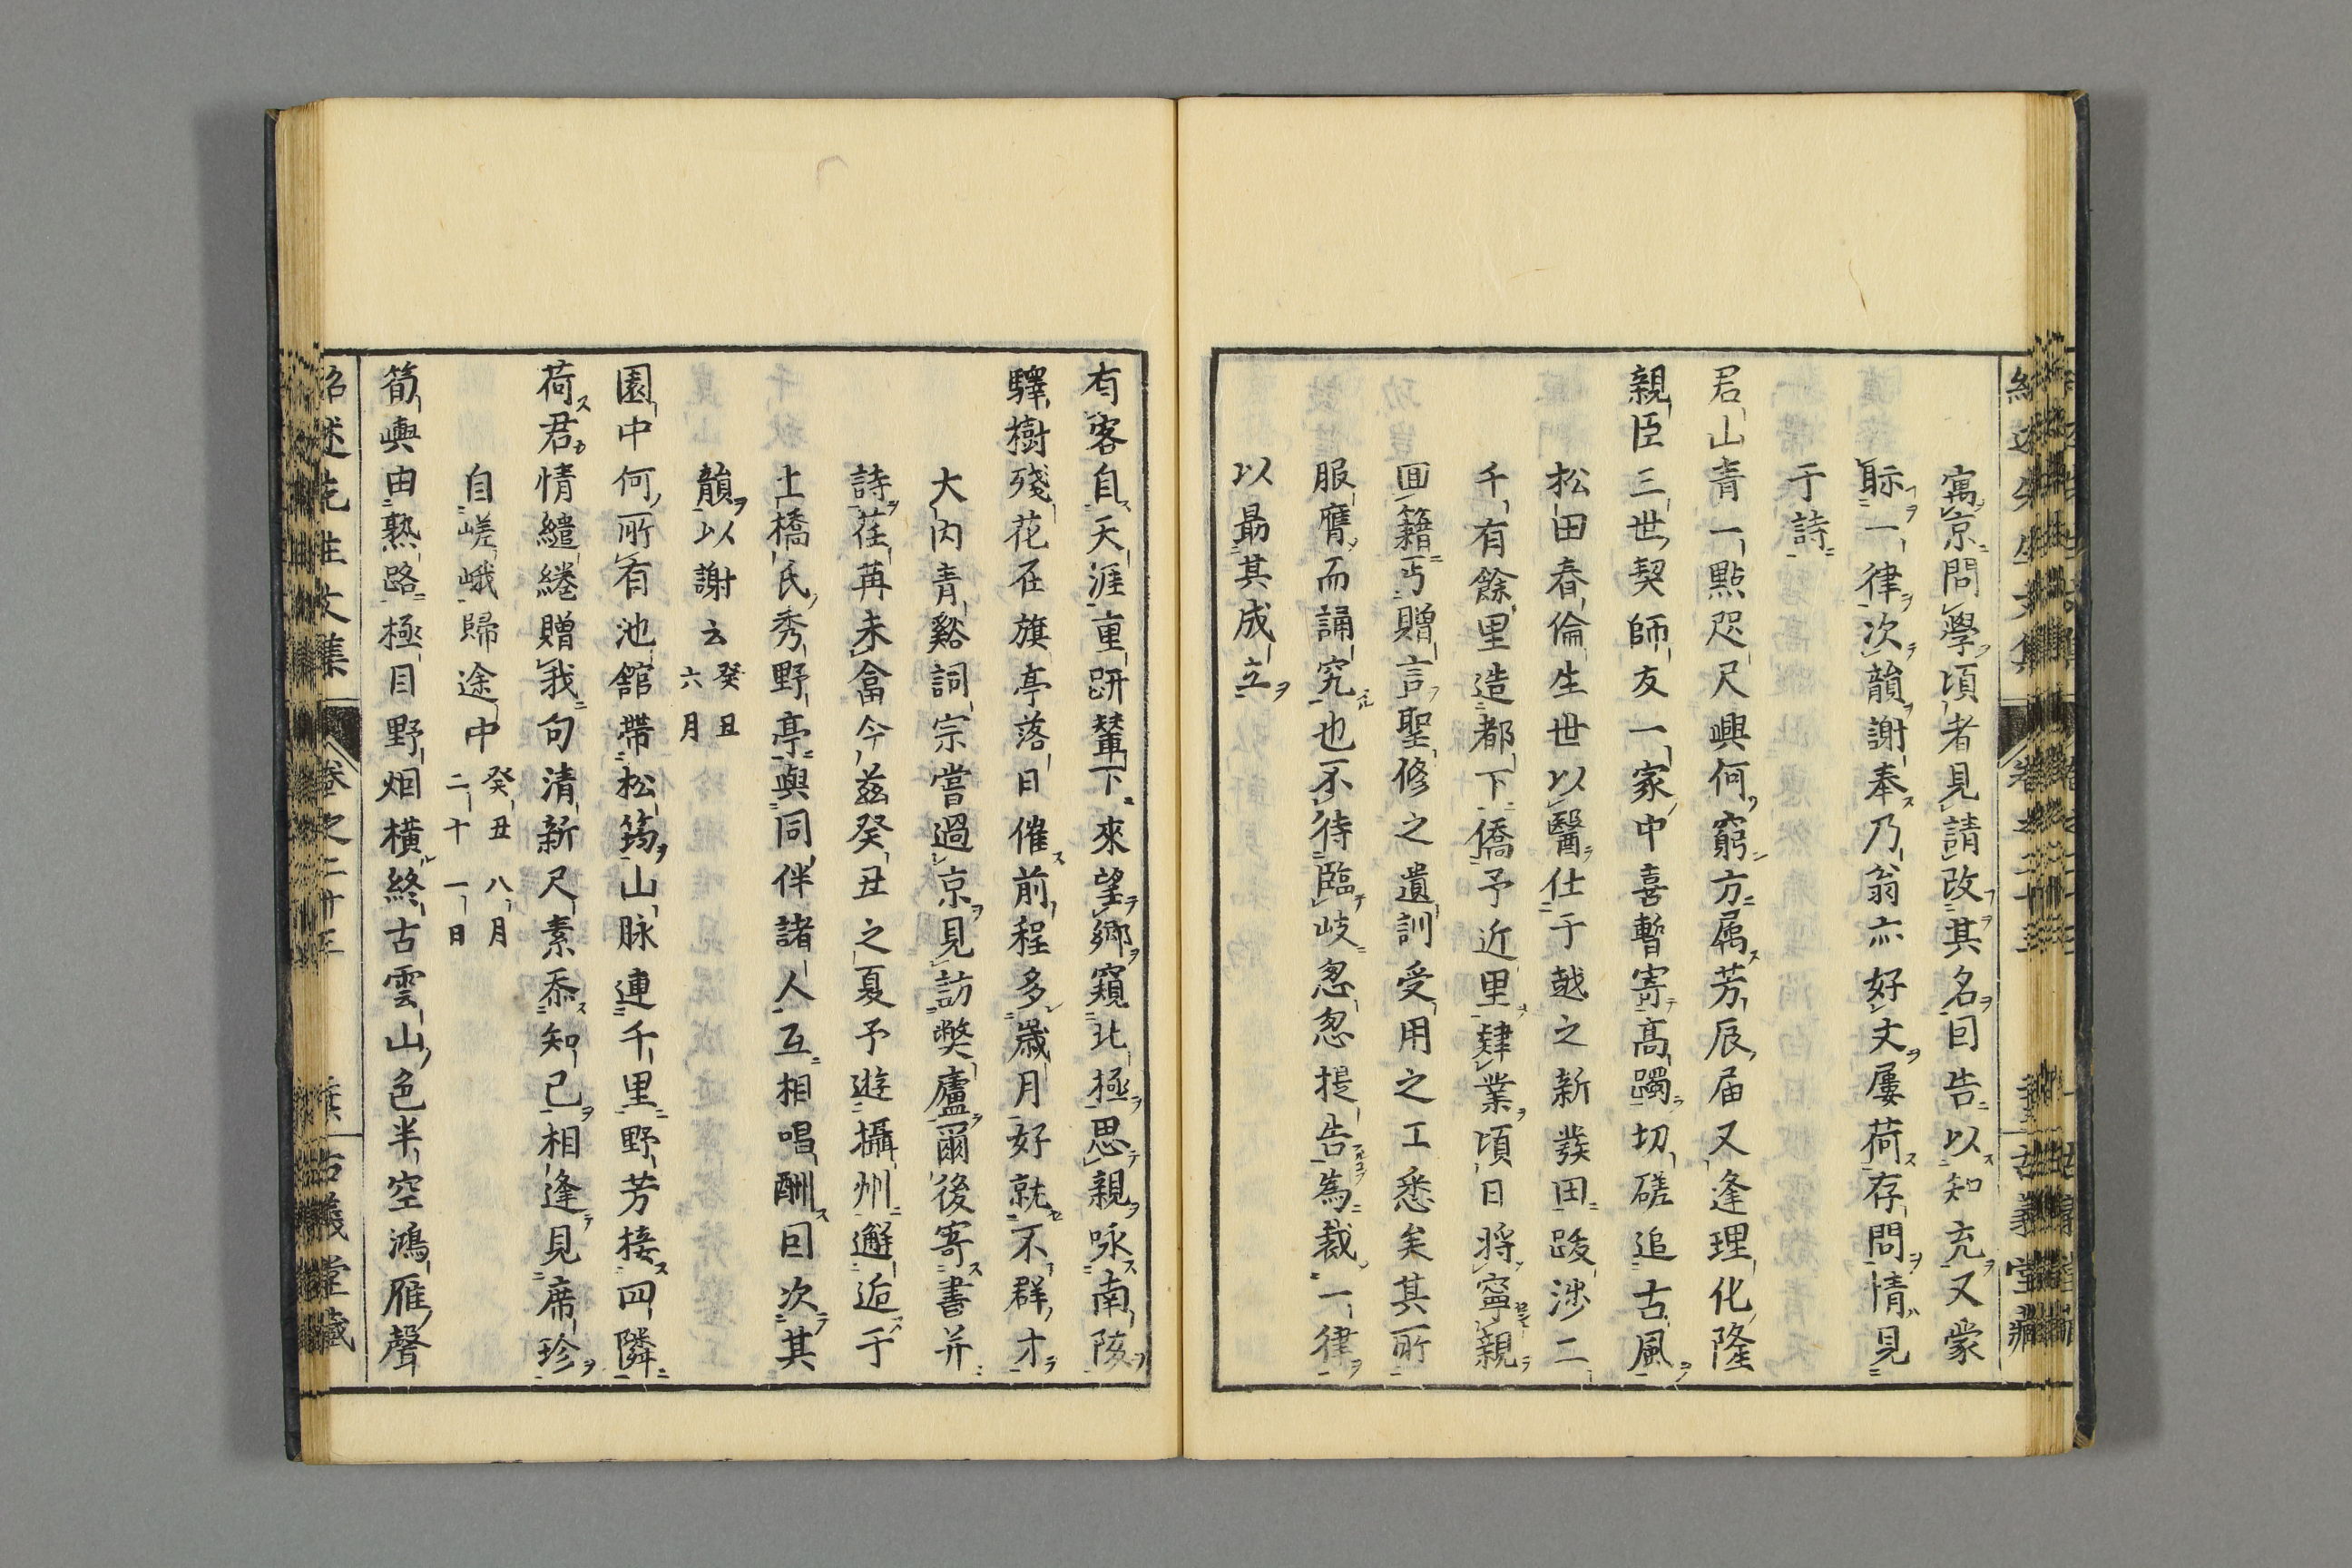 寓京問學頃者見請改其名因告以知充又蒙
眎一律次韻謝奉乃翁亦好文屢荷存問情見
于詩
君山青一點咫尺興何窮方属芳辰届又逢理化隆
親臣三世契師友一家中喜暫寄高躅切磋追古風
松田春倫生世以醫仕于越之新發田跋涉二
千有餘里造都下僑予近里肄業頃日将寧親
囬籍丐贈言聖修之遺訓受用之工悉矣其所
服膺而誦究也不待臨岐忽忽提告為裁一律
以最其成立
有客自天涯重趼輦下來望鄉窺北極思親咏南陔
驛樹殘花在旗亭落日催前程多歲月好就不群才
大内青谿詞宗嘗過京見訪獘廬爾後寄書并
詩荏苒未畣今茲癸丑之夏予遊攝州邂逅于
土橋氏秀野亭與同伴諸人互相唱酬因次其
韻以謝云 癸丑六月
園中何所有池舘帶松筠山脉連千里野芳接四隣
荷君情繾綣贈我句清新尺素忝知己相逢見席珍
自嵯峨歸途中 癸丑八月二十一日
筍輿由熟路極目野烟横終古雲山色半空鴻雁聲
紹述先生文集 卷之二十三 古義堂藏